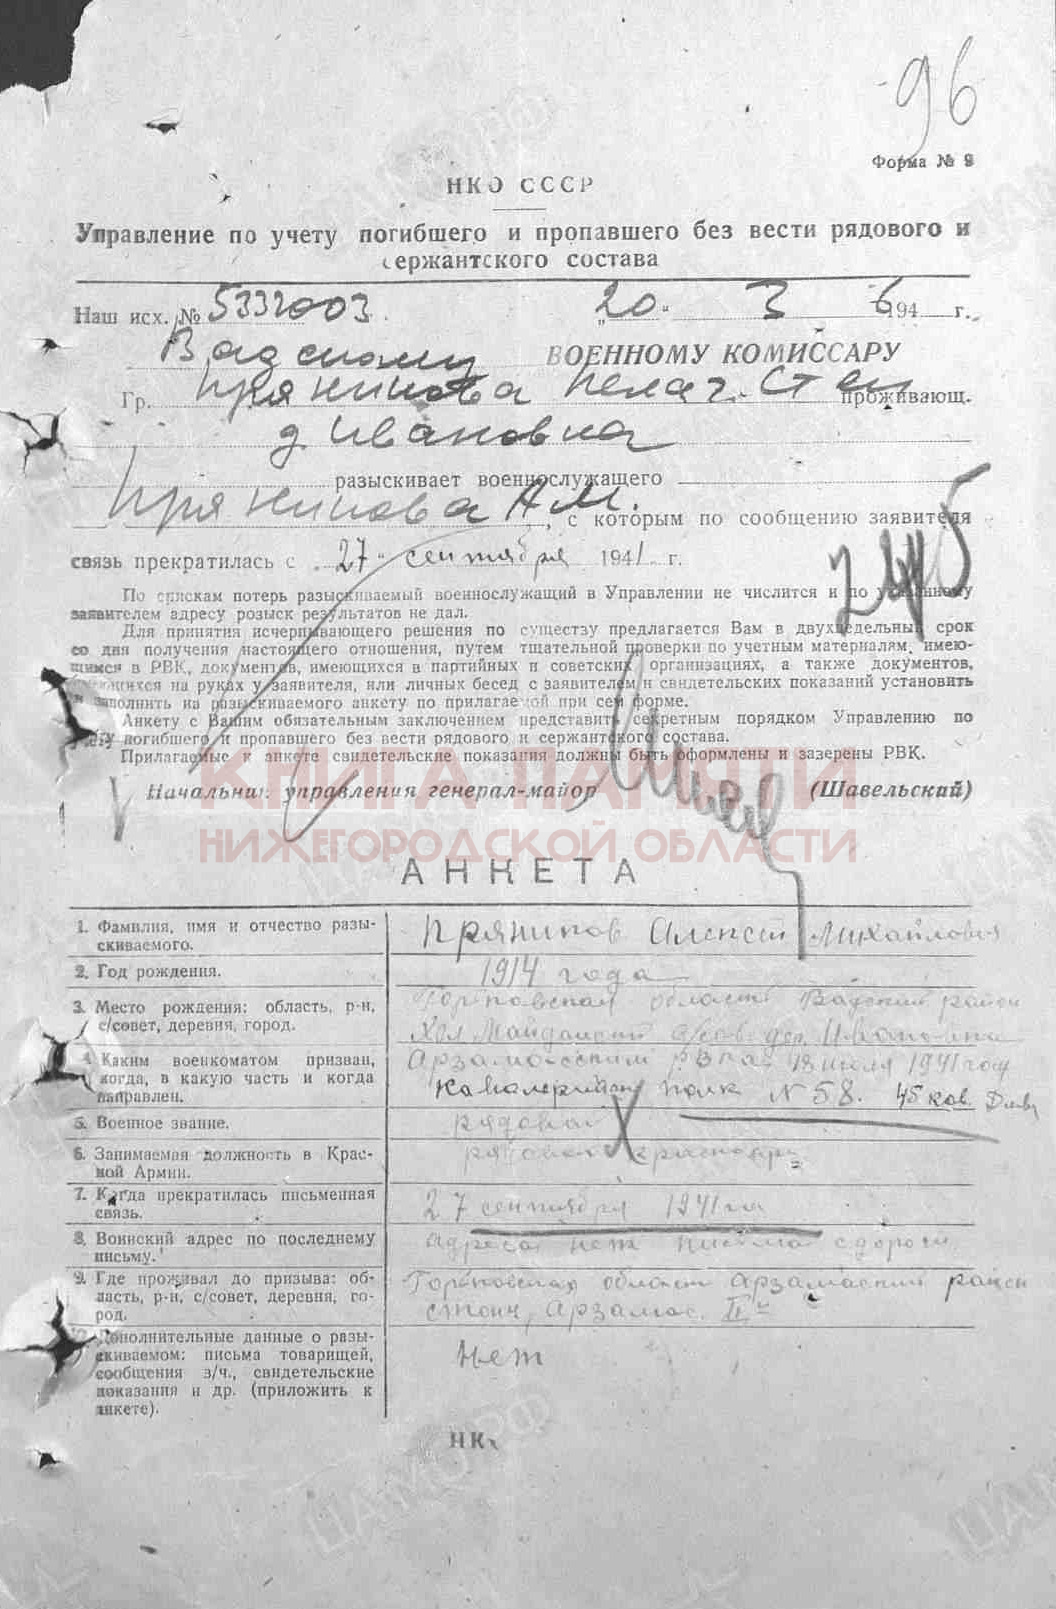 96
Форма № 9
НКО СССР
Управление по учету погибшего и пропавшего без вести рядового и
сержантского состава
Наш исх. № 5332003 „20“ 3 1946 г.
Вадскому ВОЕННОМУ КОМИССАРУ
Гр. Пряникова Пелаг. Степ проживающ.
д Ивановка
разыскивает военнослужащего
Пряникова А.М., с которым по сообщению заявителя
связь прекратилась с „27“ сентября 1941 г.
По спискам потерь разыскиваемый военнослужащий в Управлении не числится и по указанному
заявителем адресу розыск результатов не дал.
Для принятия исчерпывающего решения по существу предлагается Вам в двухнедельный срок
со дня получения настоящего отношения, путем тщательной проверки по учетным материалам, имею-
щимся в РВК, документов, имеющихся в партийных и советских организациях, а также документов,
имеющихся на руках у заявителя, или личных бесед с заявителем и свидетельских показаний установить
и заполнить на разыскиваемого анкету по прилагаемой при сем форме.
Анкету с Вашим обязательным заключением представить секретным порядком Управлению по
учету погибшего и пропавшего без вести рядового и сержантского состава.
Прилагаемые к анкете свидетельские показания должны быть оформлены и заверены РВК.
КНИГА ПАМЯТИ
Начальник управления генерал-майор (Шавельский)
НИЖЕГОРОДСКОЙ ОБЛАСТИ
АНКЕТА
1. Фамилия, имя и отчество разы-
скиваемого.
Пряников Алексей Михайлович
2. Год рождения.
1914 года
3. Место рождения: область, р-н,
с/совет, деревня, город.
Горьковская область Вадский район
Хол Майданский с/сов. дер. Ивановка
4. Каким военкоматом призван,
когда, в какую часть и когда
направлен.
Арзамасским РВК 18 июля 1941 году
Кавалерийск полк N 58. 45 кав. Див
5. Военное звание.
рядовой
6. Занимаемая должность в Крас-
ной Армии.
рядовой
7. Когда прекратилась письменная
связь.
27 сентября 1941 г
8. Воинский адрес по последнему
письму.
адреса нет письмо с дороги
9. Где проживал до призыва: об-
ласть, р-н, с/совет, деревня, го-
род.
Горьковская область Арзамасский район
станц, Арзамас. II
10. Дополнительные данные о разы-
скиваемом: письма товарищей,
сообщения з/ч., свидетельские
показания и др. (приложить к
анкете).
нет
НК